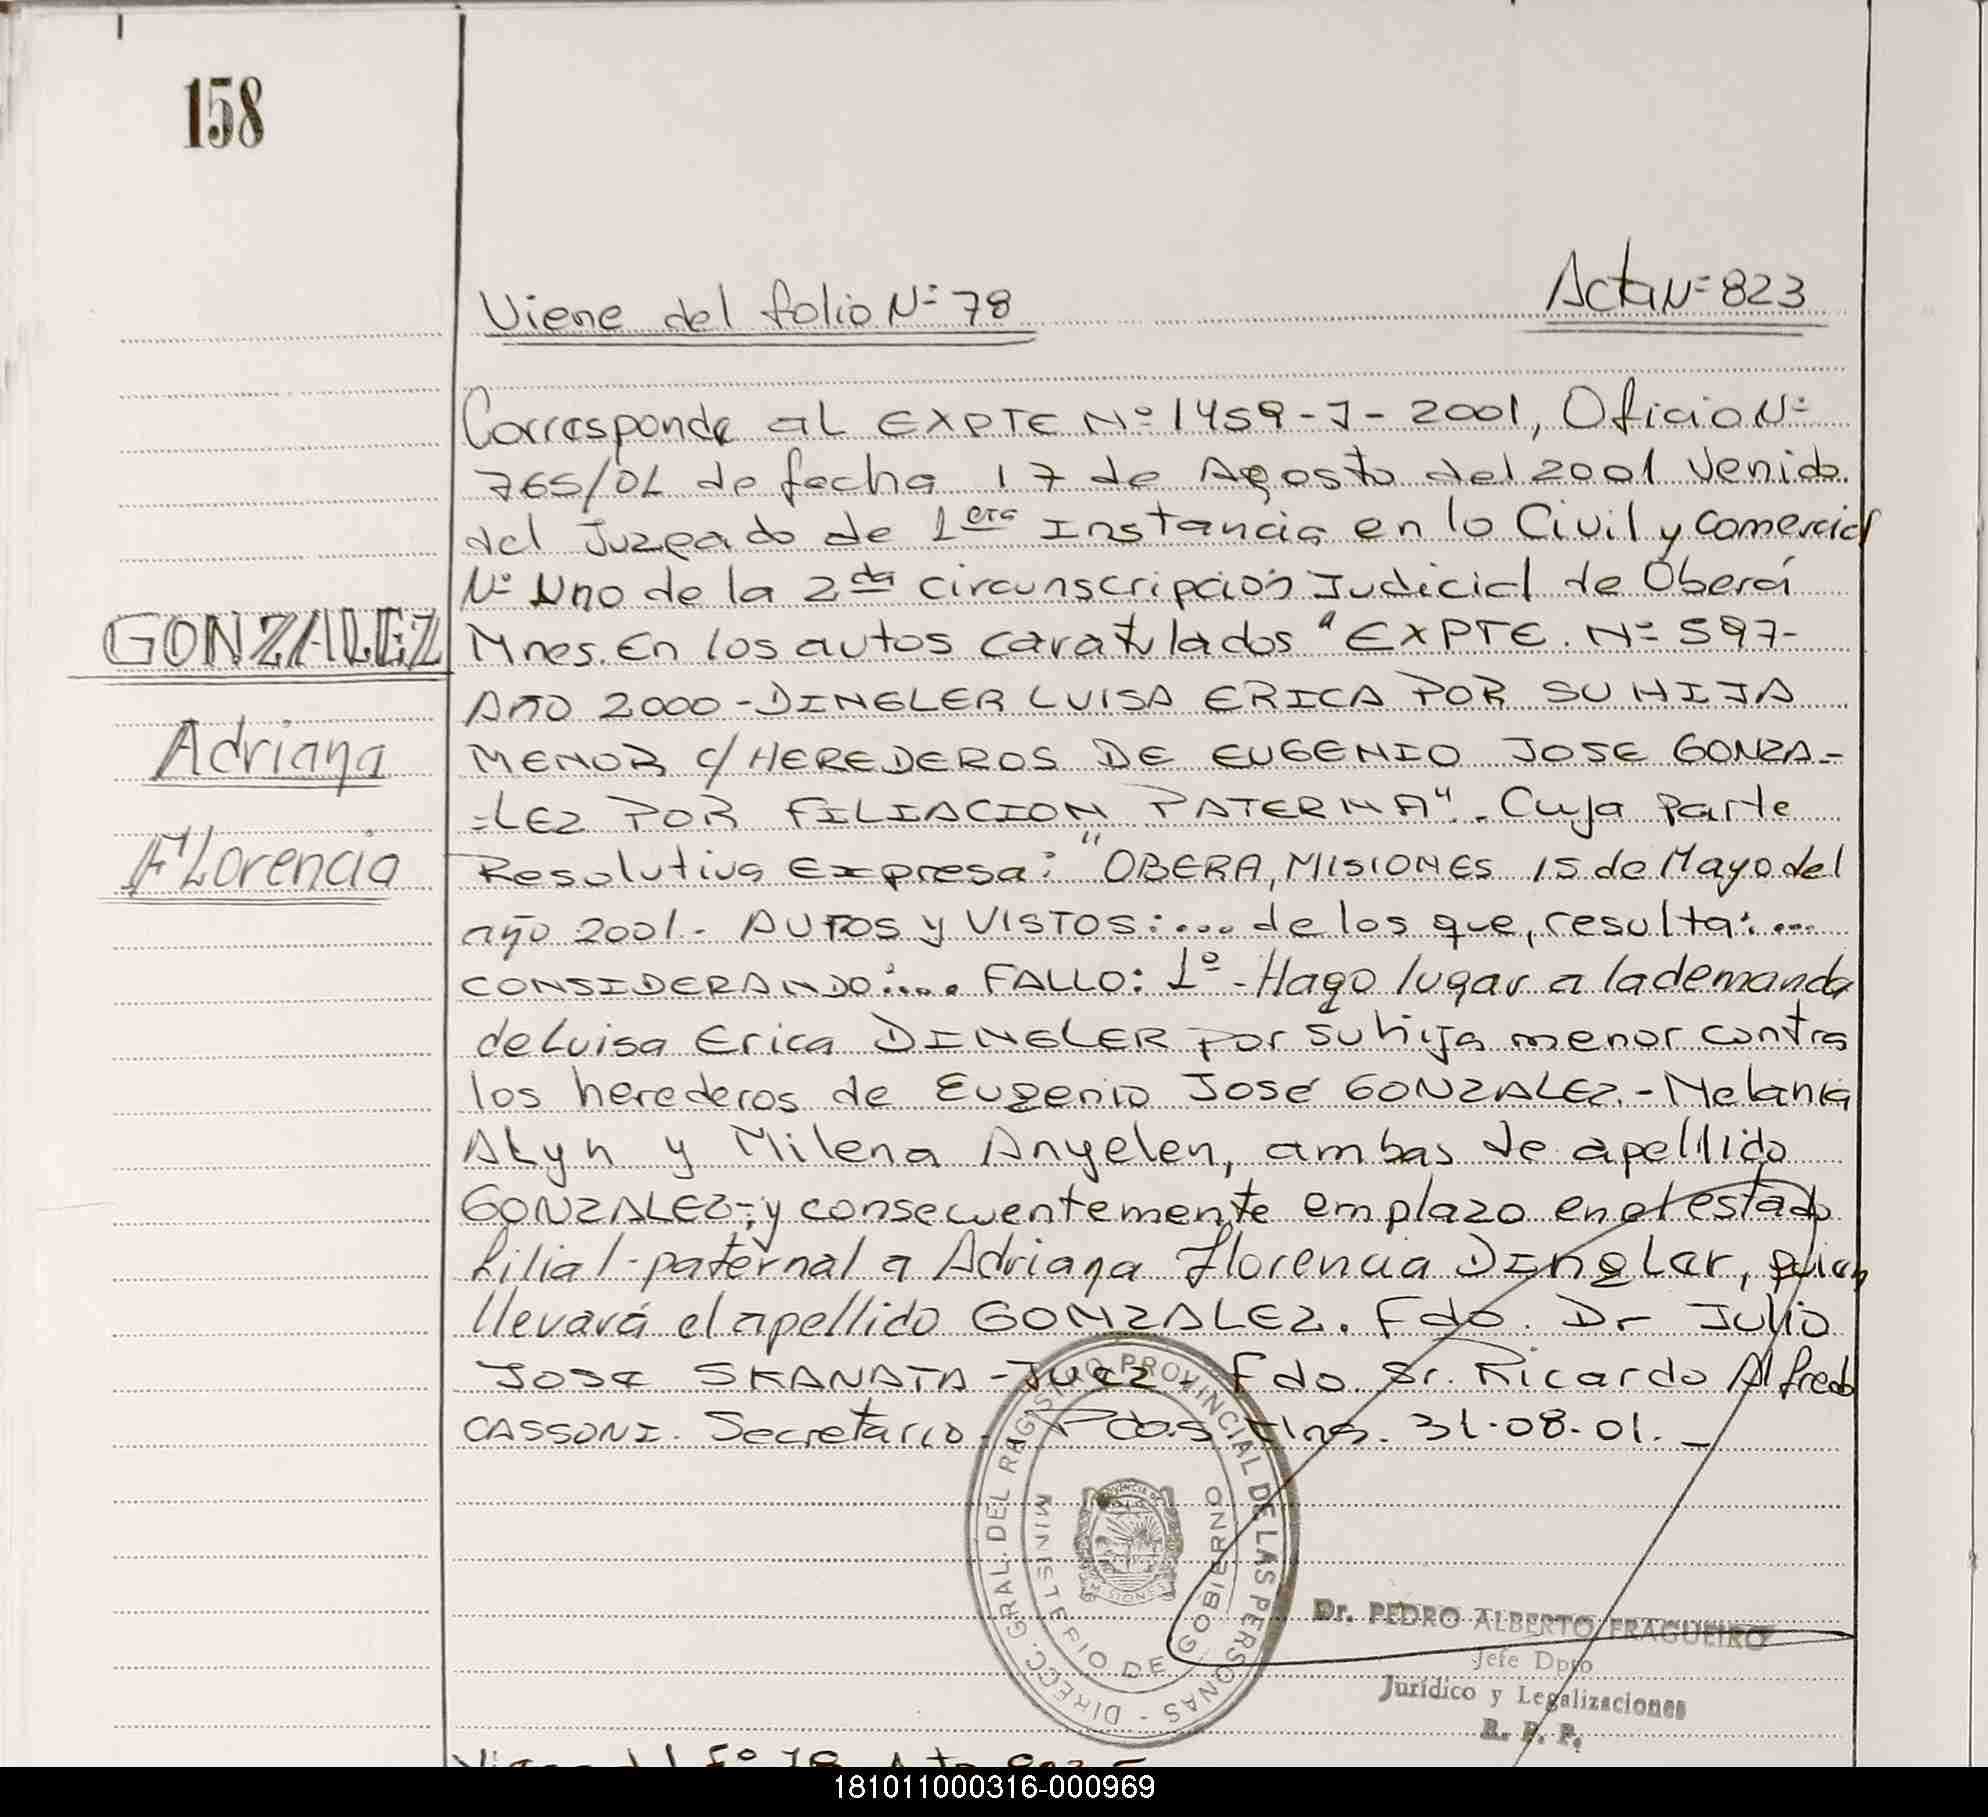 158
Viene del folio Nº 78
Acta Nº 823
Corresponde al EXPTE Nº 1459-J-2001, Oficio Nº
765/01 de fecha 17 de Agosto del 2001 Venido
del Juzgado de 1era Instancia en lo Civil y Comercial
Nº Uno de la 2da circunscripción Judicial de Oberá
GONZALEZ
Mnes. En los autos caratulados "EXPTE. Nº 597-
AÑO 2000 - DINGLER LUISA ERICA POR SU HIJA
Adriana
MENOR c/HEREDEROS DE EUGENIO JOSE GONZA-
=LEZ POR FILIACION PATERNA".. Cuya Parte
Florencia
Resolutiva Expresa: "OBERA, MISIONES 15 de Mayo del
año 2001.- AUTOS y VISTOS:... de los que, resulta:...
CONSIDERANDO:.... FALLO: 1º - Hago lugar a la demanda
de Luisa Erica DINGLER por su hija menor contra
los herederos de Eugenio José GONZALEZ.- Melania
Alyn y Milena Anyelen, ambas de apelllido
GONZALEZ-; y consecuentemente emplazo en el estado
filial-paternal a Adriana Florencia Dingler, quien
llevará el apellido GONZALEZ. Fdo. Dr Julio
Jose SKANATA - Juez. Fdo. Sr. Ricardo Alfredo
CASSONI. Secretario. Pdas. Mns. 31.08.01.-
DIREC. GRAL. DEL REGISTRO PROVINCIAL DE LAS PERSONAS -
MINISTERIO DE GOBIERNO
MISIONES
Dr. PEDRO ALBERTO FRAGUEIRO
Jefe Dpto
Jurídico y Legalizaciones
R. P. P.
181011000316-000969